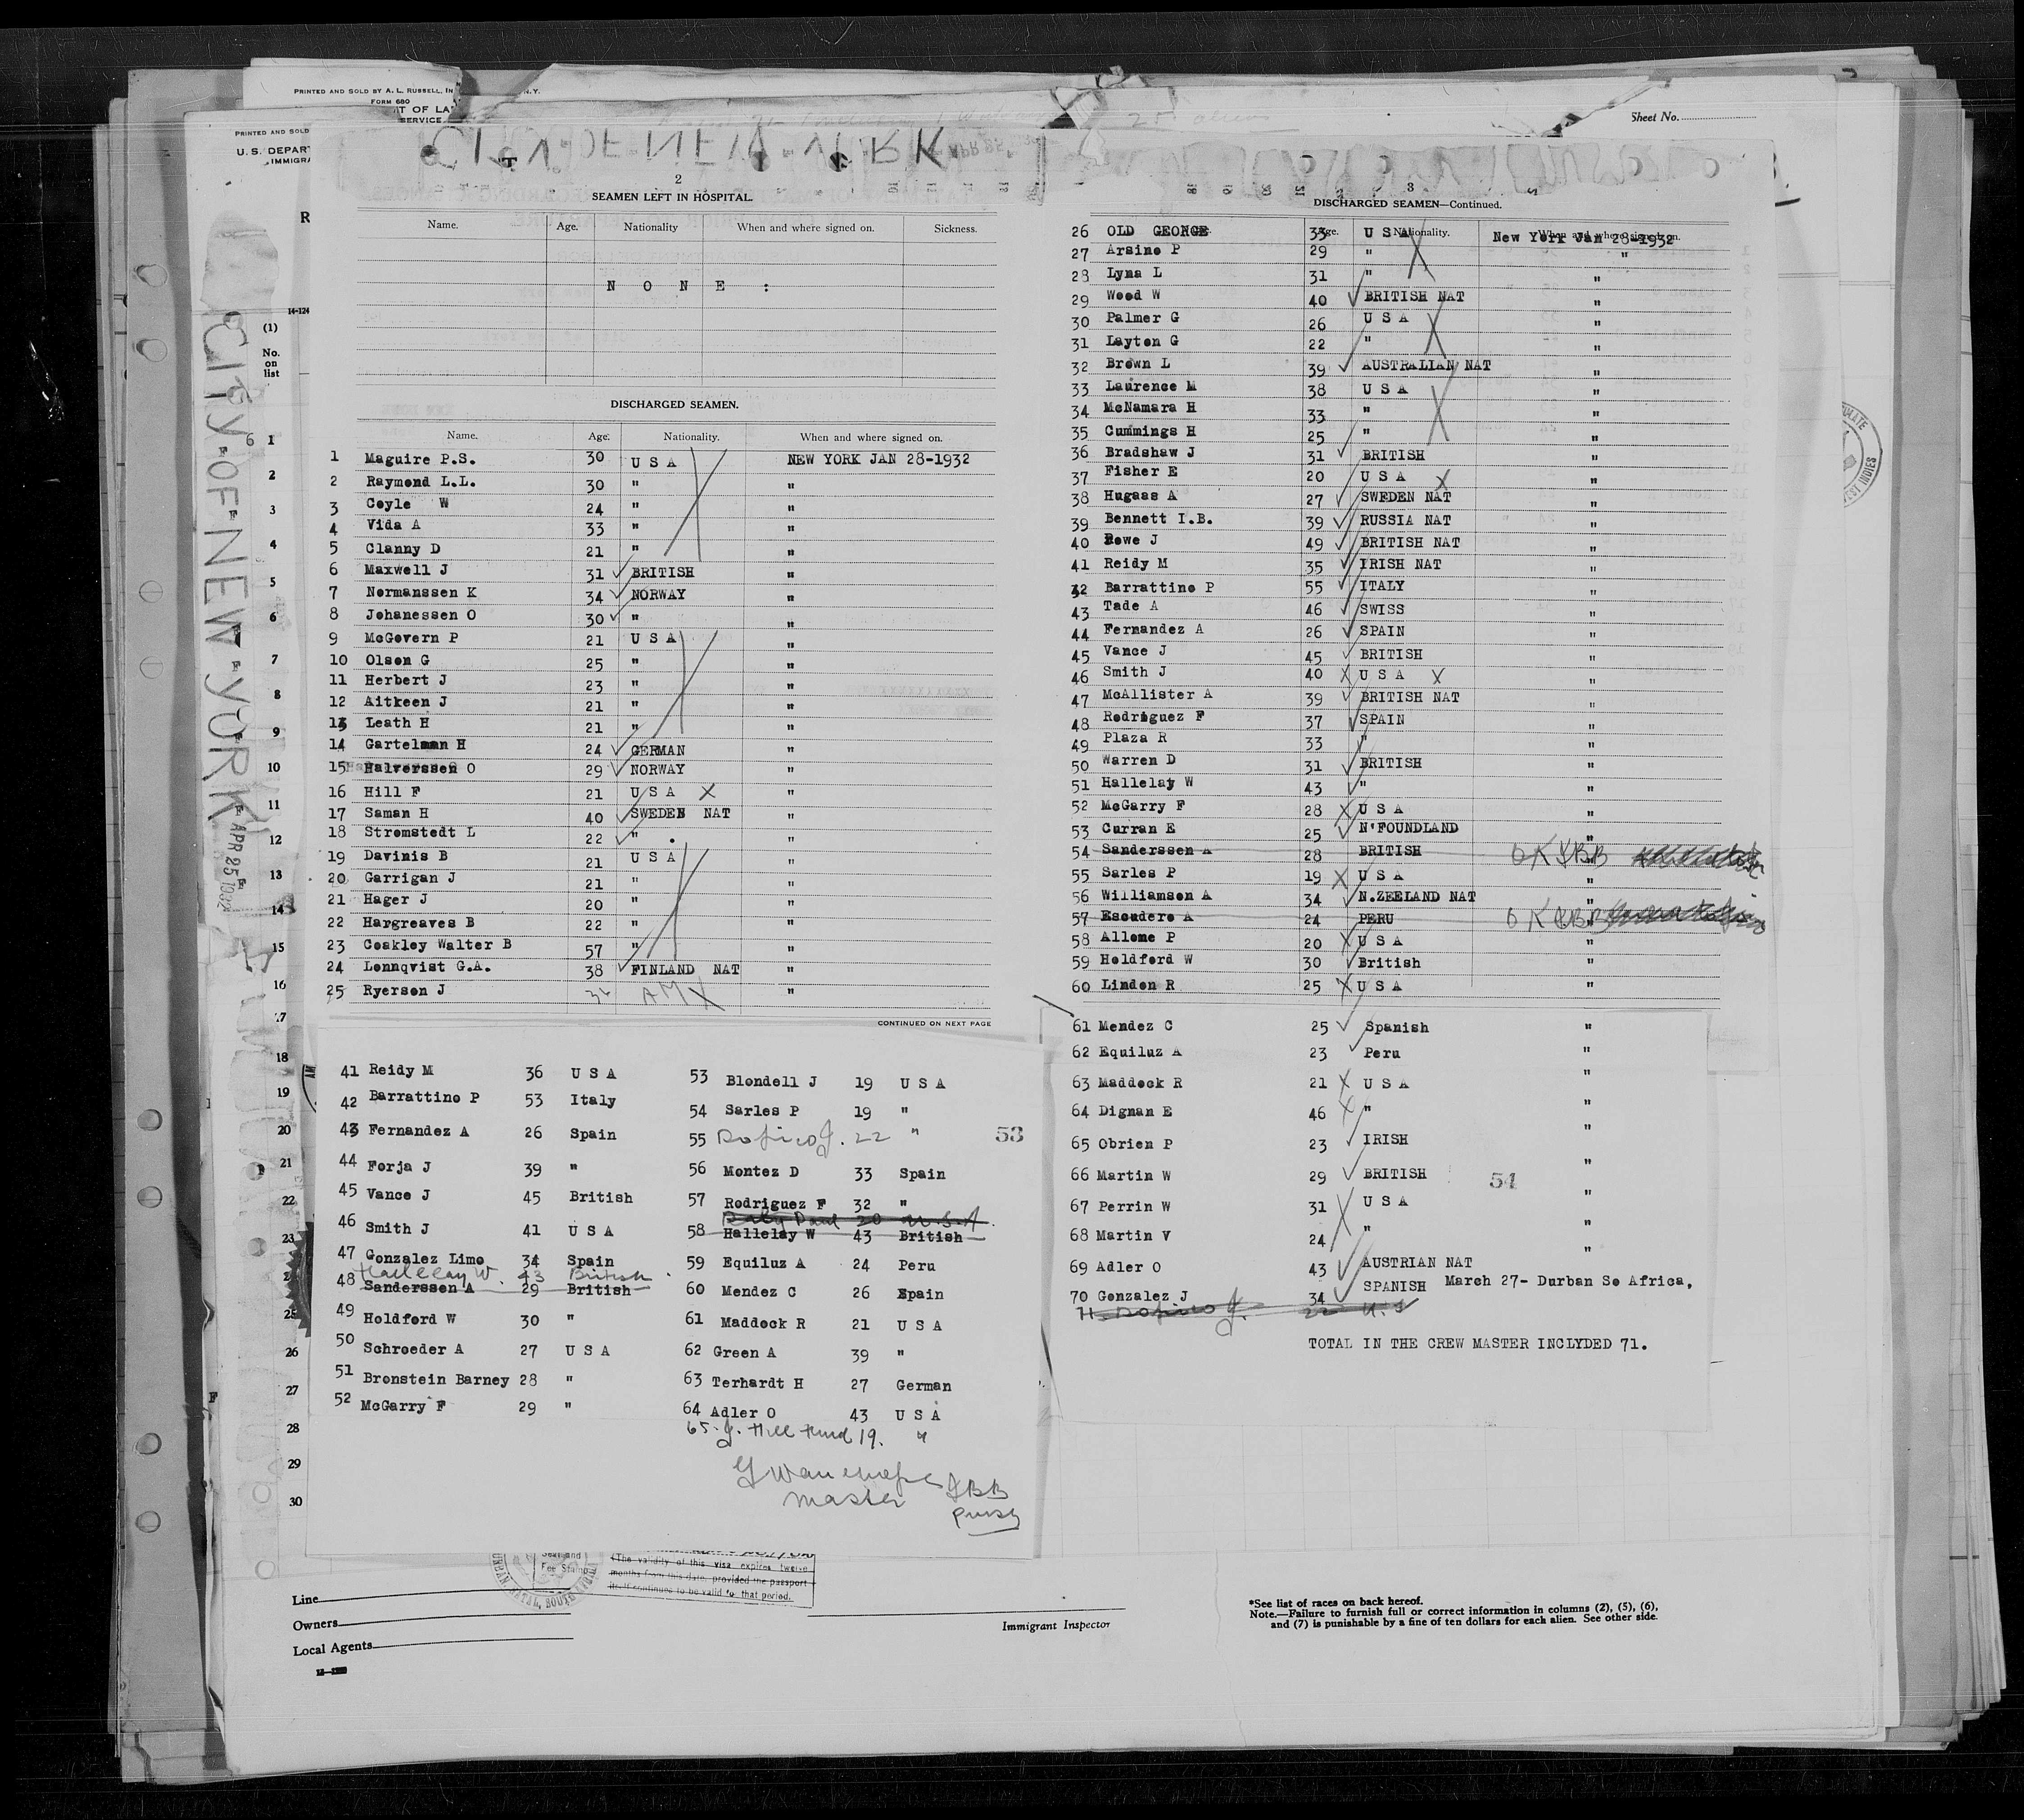 PRINTED AND SOLD BY A. L. RUSSELL, IN
N.Y.
FORM 680
T OF LA
SERVICE
PRINTED AND SOLD
U.S. DEPART
IMMIGRA
25 aliens
Sheet No.
CITY-OF-NEW-YORK
APR 25 1932
2
SEAMEN LEFT IN HOSPITAL.
Name. Age. Nationality When and where signed on. Sickness.
N O N E :
DISCHARGED SEAMEN.
Name. Age. Nationality. When and where signed on.
1 Maguire P.S. 30 U S A NEW YORK JAN 28-1932
2 Raymond L.L. 30 " "
3 Coyle W 24 " "
4 Vida A 33 " "
5 Clanny D 21 " "
6 Maxwell J 31 BRITISH "
7 Normanssen K 34 NORWAY "
8 Johanessen O 30 " "
9 McGovern P 21 U S A "
10 Olsen G 25 " "
11 Herbert J 23 " "
12 Aitkeen J 21 " "
13 Leath H 21 " "
14 Gartelman H 24 GERMAN "
15 Halverssen O 29 NORWAY "
16 Hill F 21 U S A X "
17 Saman H 40 SWEDEN NAT "
18 Stromstedt L 22 " . "
19 Davinis B 21 U S A "
20 Garrigan J 21 " "
21 Hager J 20 " "
22 Hargreaves B 22 " "
23 Coakley Walter B 57 " "
24 Lonnqvist G.A. 38 FINLAND NAT "
25 Ryerson J AM "
CONTINUED ON NEXT PAGE
3
DISCHARGED SEAMEN—Continued.
26 OLD GEORGE 33 U S A New York Jan 28-1932
27 Arsino P 29 " "
28 Lyna L 31 " "
29 Wood W 40 BRITISH NAT "
30 Palmer G 26 U S A "
31 Layton G 22 " "
32 Brown L 39 AUSTRALIAN NAT "
33 Laurence M 38 U S A "
34 McNamara H 33 " "
35 Cummings H 25 " "
36 Bradshaw J 31 BRITISH "
37 Fisher E 20 U S A X "
38 Hugass A 27 SWEDEN NAT "
39 Bennett I.B. 39 RUSSIA NAT "
40 Rowe J 49 BRITISH NAT "
41 Reidy M 35 IRISH NAT "
42 Barrattino P 55 ITALY "
43 Tade A 46 SWISS "
44 Fernandez A 26 SPAIN "
45 Vance J 45 BRITISH "
46 Smith J 40 X U S A X "
47 McAllister A 39 BRITISH NAT "
48 Rodriguez F 37 SPAIN "
49 Plaza R 33 " "
50 Warren D 31 BRITISH "
51 Hallelay W 43 " "
52 McGarry F 28 X U S A "
53 Curran E 25 N'FOUNDLAND "
54 Sanderssen A 28 BRITISH " OK
55 Sarles P 19 X U S A "
56 Williamson A 34 N.ZEELAND NAT "
57 Escudero A 24 PERU " OK
58 Allome P 20 X U S A "
59 Holdford W 30 British "
60 Linden R 25 X U S A "
61 Mendez C 25 Spanish "
62 Equiluz A 23 Peru "
63 Maddock R 21 X U S A "
64 Dignan E 46 X " "
65 Obrien P 23 IRISH "
66 Martin W 29 BRITISH "
54
67 Perrin W 31 U S A "
68 Martin V 24 " "
69 Adler O 43 AUSTRIAN NAT
70 Gonzalez J 34 SPANISH March 27- Durban So Africa,
71 22
TOTAL IN THE CREW MASTER INCLYDED 71.
41 Reidy M 36 U S A
42 Barrattino P 53 Italy
43 Fernandez A 26 Spain
44 Forja J 39 "
45 Vance J 45 British
46 Smith J 41 U S A
47 Gonzalez Limo 34 Spain
Hallelay W. 43 British
48 Sanderssen A 29 British
49 Holdford W 30 "
50 Schroeder A 27 U S A
51 Bronstein Barney 28 "
52 McGarry F 29 "
53 Blondell J 19 U S A
54 Sarles P 19 "
55 22 "
53
56 Montez D 33 Spain
57 Rodriguez F 32 "
Paul 20 U.S.A.
58 Hallelay W 43 British
59 Equiluz A 24 Peru
60 Mendez C 26 Spain
61 Maddock R 21 U S A
62 Green A 39 "
63 Terhardt H 27 German
64 Adler O 43 U S A
65. J. 19. "
master
14-124
(1)
No.
on
list
6
1
2
3
4
5
6
7
8
9
10
11
12
13
14
15
16
17
18
19
20
21
22
23
25
26
27
28
29
30
Seal and
Fee Stamp
(The validity of this visa expires twelve
months from this date, provided the passport
continues to be valid for that period.
Line
Owners
Local Agents
Immigrant Inspector
*See list of races on back hereof.
Note.—Failure to furnish full or correct information in columns (2), (5), (6),
and (7) is punishable by a fine of ten dollars for each alien. See other side.